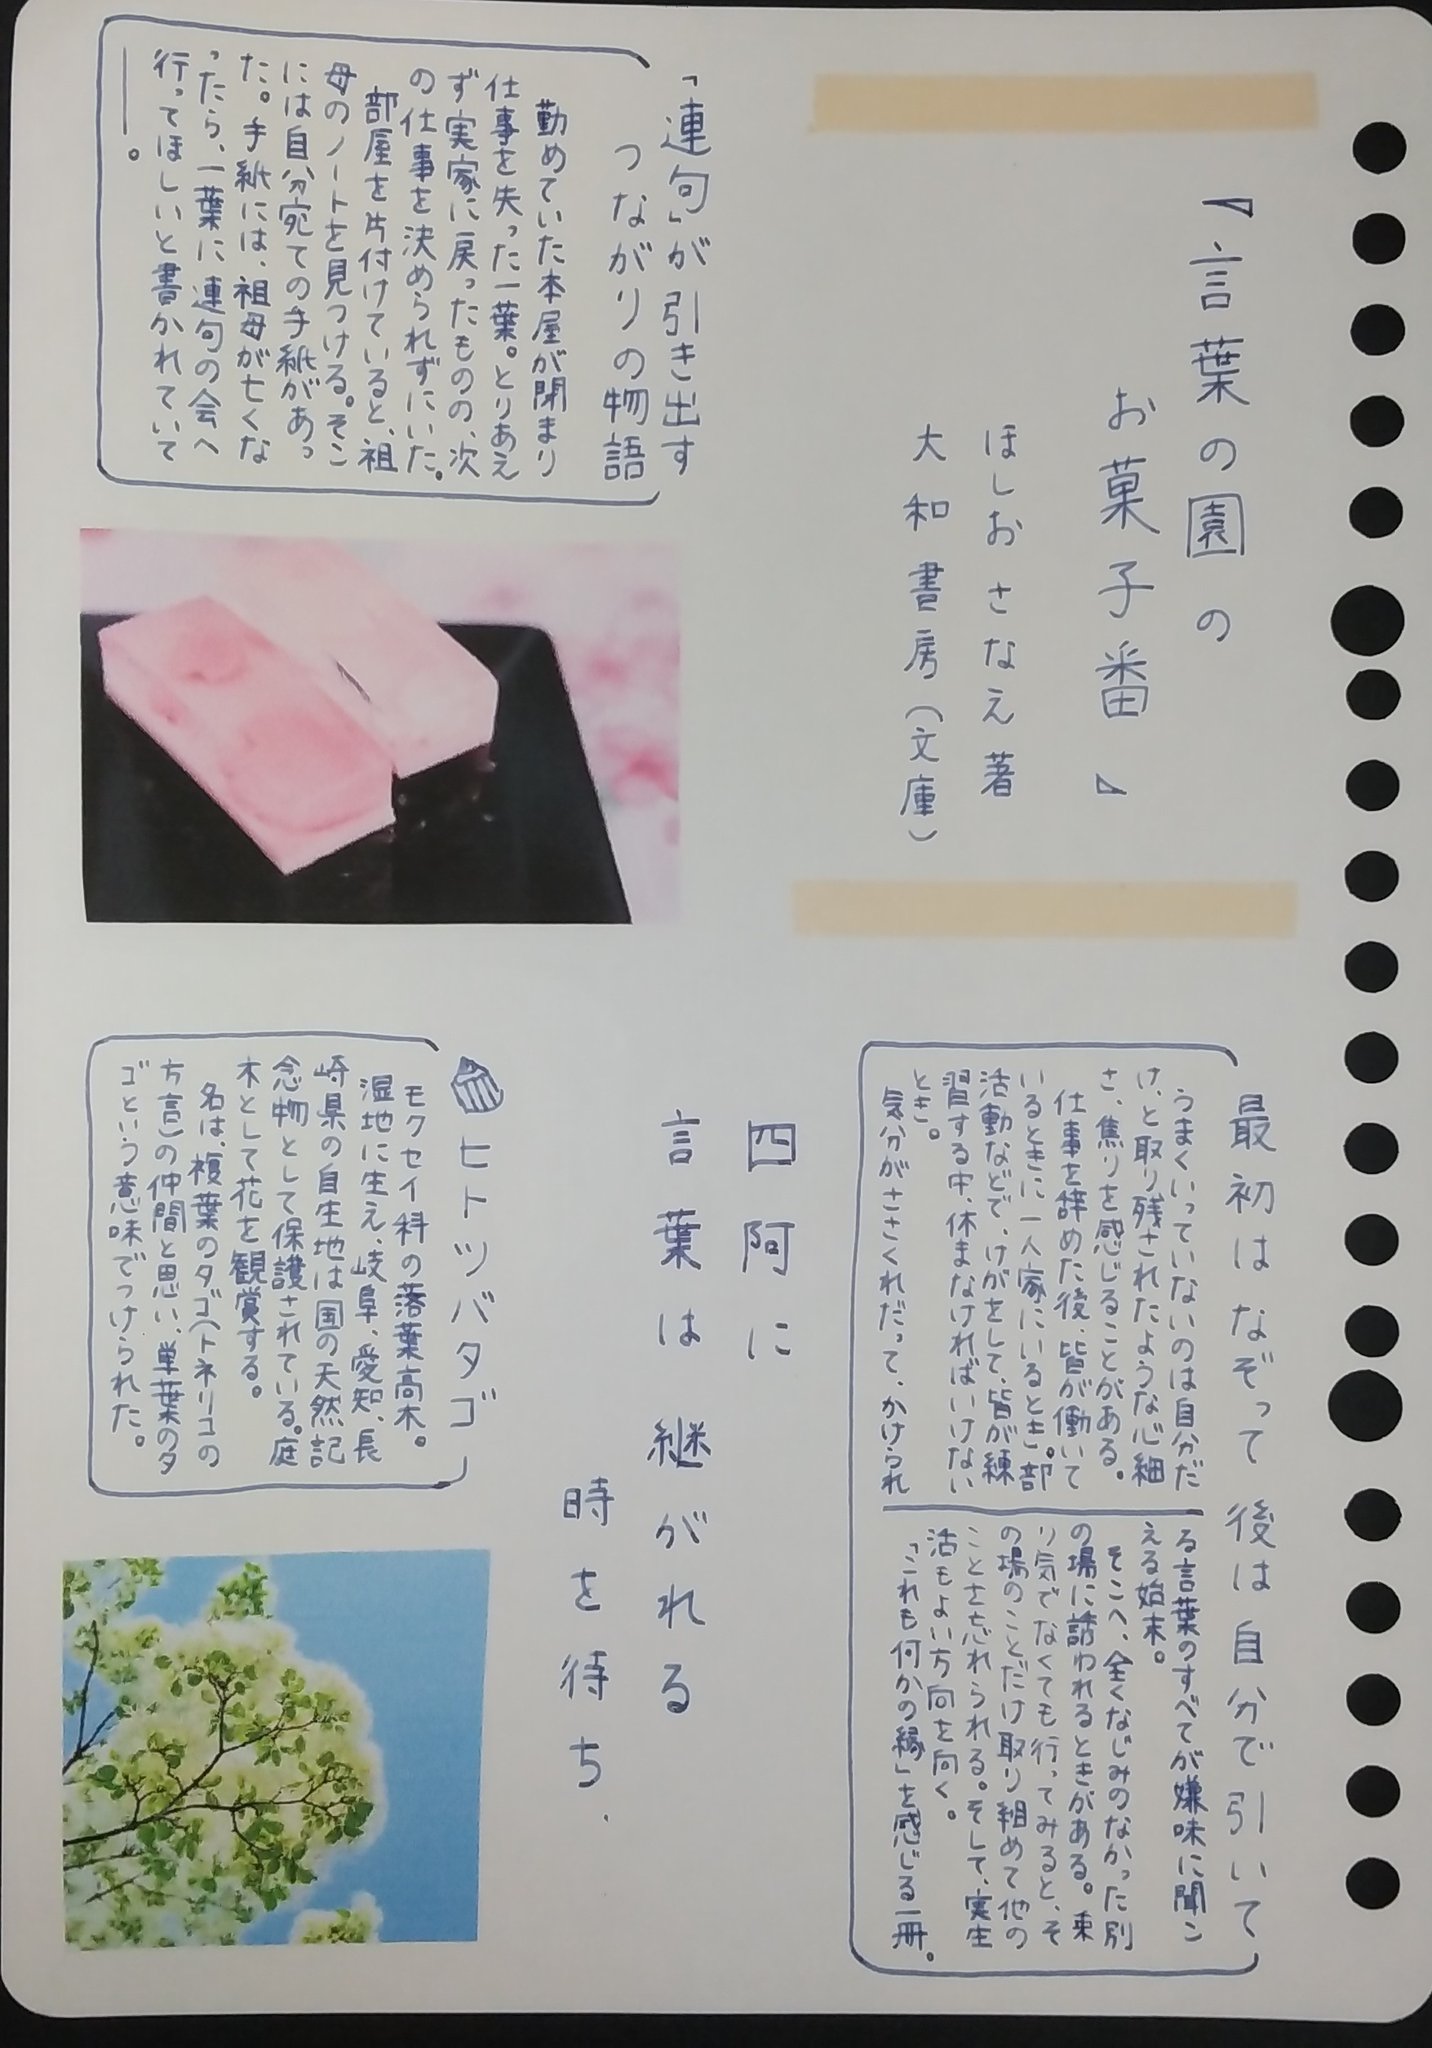 『言葉の園の
お菓子番』
ほしおさなえ 著
大和書房(文庫)
「連句」が引き出す
つながりの物語
勤めていた本屋が閉まり
仕事を失った一葉。とりあえ
ず実家に戻ったものの、次
の仕事を決められずにいた。
部屋を片付けていると、祖
母のノートを見つける。そこ
には自分宛ての手紙があっ
た。手紙には、祖母が亡くな
ったら、一葉に連句の会へ
行ってほしいと書かれていて
――。
最初はなぞって 後は自分で引いて
うまくいっていないのは自分だ
け、と取り残されたような心細
さ、焦りを感じることがある。
仕事を辞めた後、皆が働いて
いるときに一人家にいるとき。部
活動などで、けがをして、皆が練
習する中、休まなければいけない
とき。
気分がささくれだって、かけられ
る言葉のすべてが嫌味に聞こ
える始末。
そこへ、全くなじみのなかった別
の場に誘われるときがある。乗
り気でなくても行ってみると、そ
の場のことだけ取り組めて他の
ことを忘れられる。そして、実生
活もよい方向を向く。
「これも何かの縁」を感じる一冊。
四阿に
言葉は継がれる
時を待ち.
ヒトツバタゴ
モクセイ科の落葉高木。
湿地に生え、岐阜、愛知、長
崎県の自生地は国の天然記
念物として保護されている。庭
木として花を観賞する。
名は、複葉のタゴ(トネリコの
方言)の仲間と思い、単葉のタ
ゴという意味でつけられた。